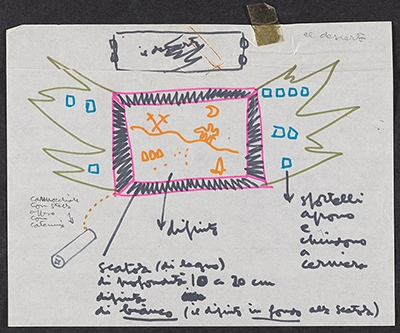 el deserto
il deserto
cannocchiale
con
dipinto
scatola (di legno)
di profondità 10 a 20 cm
dipinta
di bianco (il dipinto in fondo alla scatola)
sportelli
aprono
e
chiudono
a
cerniera